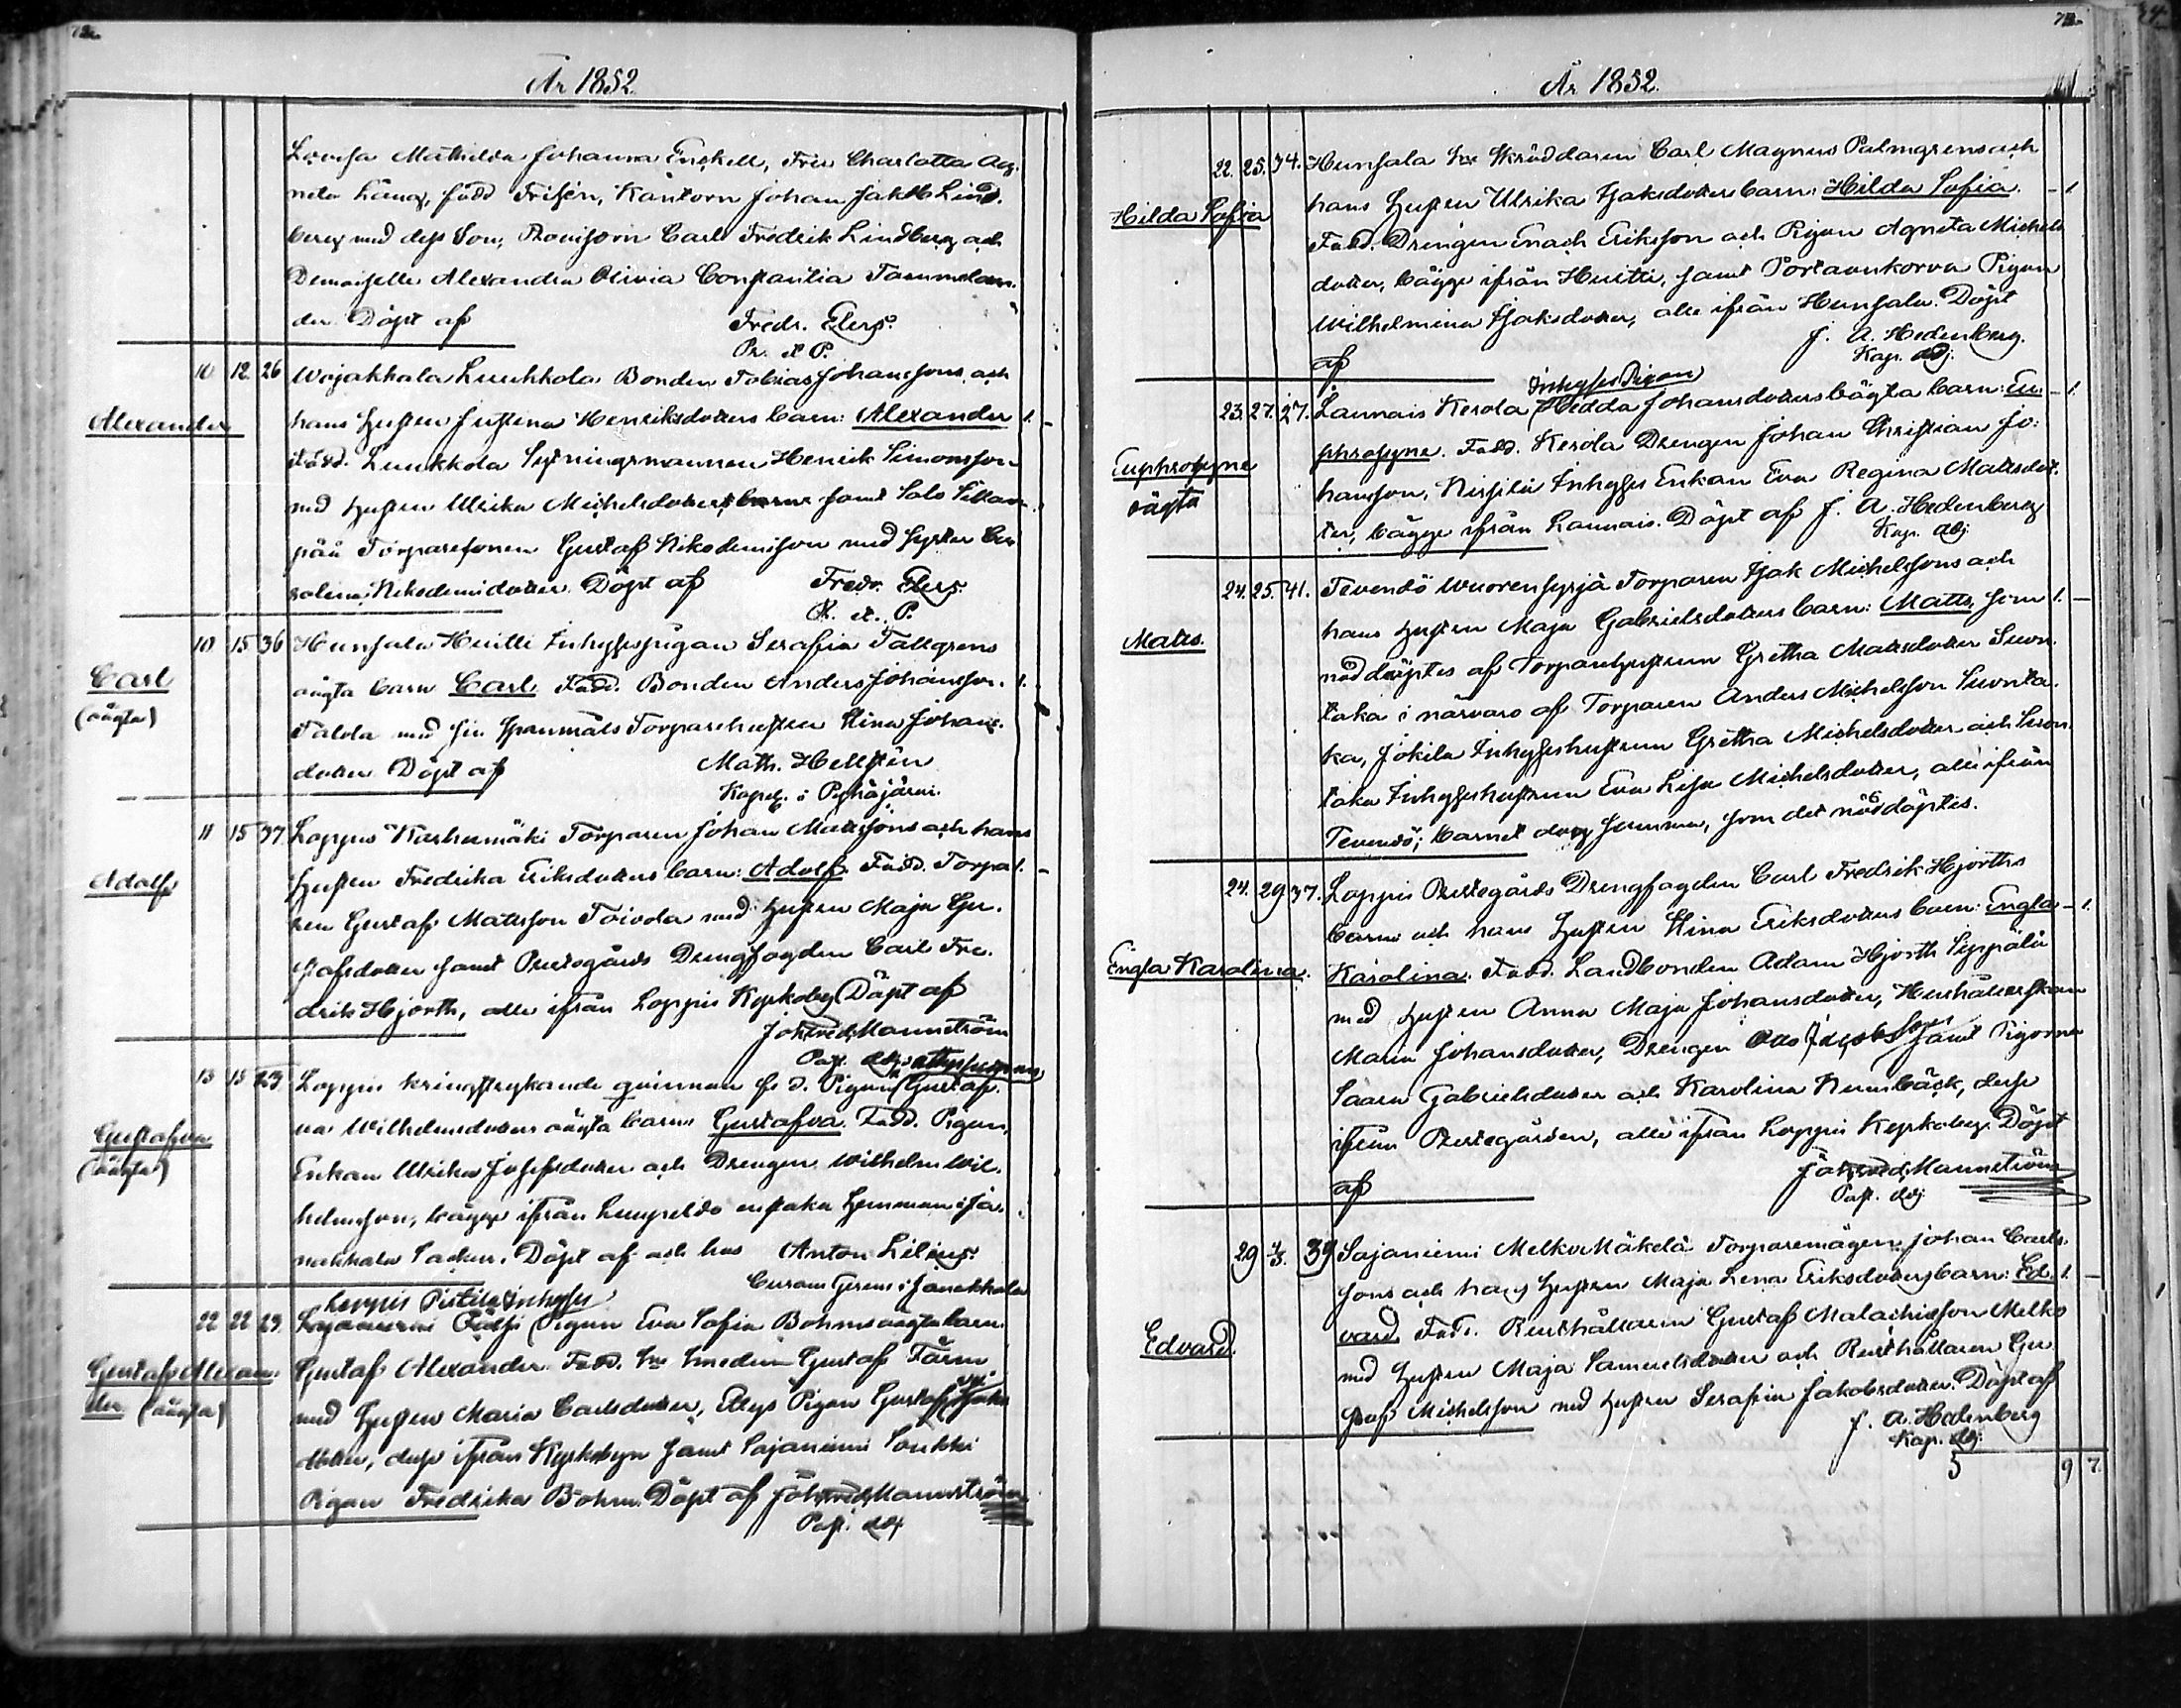 År 1852.
Lovisa Mathilda Johanna Enckell, Fru Charlotta Ag-
neta Lang, född Frisén, Kantorn Johan Jakob Lind-
berg med dess Son, Provisorn Carl Fredrik Lindberg och
Demoiselle Alexandra Olivia Constantia Tammelan-
der. Döpt af Fredr. Elers.
Pr. et P.
10 12. 26 Wojakkala Luukkola Bonden Tobias Johanssons och
Alexander hans hustru Justina Henriksdotters barn: Alexander 1. -
Fadd. Luukkola Sytningsmannen Henrik Simonsson
med hustru Ulrika Michelsdotter samt Salo
pää Torparesonen Gustaf Nikodemisson med syster Ca-
rolina Nikodemidotter. Döpt af Fredr. Elers.
P. et. P.
10 15 36 Hunsala Huitti Inhyses pigan Serafia Tallgrens
Carl
(oägta)
oägta barn Carl. Fadd. Bonden Anders Johansson 1.
Talola med sin Torparehustrun Stina Johans-
dotter. Döpt af Math. Hellstén
Kapel. i Pyhäjärvi.
11 15 37. Loppis Karhumäki Torparen Johan Mattssons och hans
Adolf hustru Fredrika Eriksdotters barn: Adolf. Fadd. Torpa- 1. -
ren Gustaf Mattsson Toivola med hustru Maja Gu-
stafsdotter samt Prestegårds Drengfogden Carl Fre-
drik Hjorth, alla ifrån Loppis Kyrkoby. Döpt af
Joh. Fred. Mannström
Past. adj.
13 15 23 Loppis kringstrykande qvinnan f. d. Pigan Gustaf-
Gustafva
(oägta)
va Wilhelmsdotters oägta barn Gustafva. Fadd. Pigan,
Enkan Ulrika Josefsdotter och Drengen Wilhelm Wil-
helmsson, bägge ifrån enstaka hemman i Ja-
nakkala Socken. Döpt af och hos Anton Lilius.
Curam Gerens i Janakkala
Loppis Pistilä Inhyses
22 22 23. Pigan Eva Sofia Bohms oägta barn
Gustaf Alexan-
der (oägta)
Gustaf Alexander. Fadd. Smeden Gustaf Färm
med hustru Maria Carlsdotter, Pigan Gustafva Isaks-
dotter, desse ifrån Kyrkobyn samt Sajaniemi Soukki
Pigan Fredrika Bohm. Döpt af Joh. Fred. Mannström
Past. adj
År 1852.
22. 25. 34. Hunsala Skräddaren Carl Magnus Palmgrens och
Hilda Sofia hans hustru Ulrika Isaksdotters barn: Hilda Sofia. - 1.
Fadd. Drengen Enoch Eriksson och Pigan Agneta Michels-
dotter, bägge ifrån Huitti, samt Portaankorva Pigan
Wilhelmina Isaksdotter, alla ifrån Hunsala. Döpt
af J. A. Hedenberg.
Kap. adj.
Inhyses Pigan
23. 27. 27. Launais Kerola Hedda Johansdotters oägta barn: Eu- - 1.
Euphrosyne
oägta
phrosyne. Fadd. Kerola Drengen Johan Christian Jo-
hansson, Nissilä Inhyses Enkan Eva Regina Mattsdot-
ter, bägge ifrån Launais. Döpt af J. A. Hedenberg
Kap. adj.
24. 25. 41. Tevendö Wuorensyrjä Torparen Isak Michelssons och
Matts. hans hustru Maja Gabrielsdotters barn: Matts, som 1. -
nöddöptes af Torparehustrun Gretha Mattsdotter Suon-
taka i närvaro af Torparen Anders Michelsson Suonta-
ka, Jokila Inhyseshustrun Gretha Michelsdotter och Suon-
taka Inhyseshustrun Eva Lisa Michelsdotter, alla ifrån
Tevendö; barnet dog samma, som det nöddöptes.
24. 29 37. Loppis Prestegårds Drengfogden Carl Fredrik Hjorths
barn och hans hustru Stina Eriksdotters barn: Engla - 1.
Engla Karolina. Karolina. Fadd. Landbonden Adam Hjorth Seppälä
med hustru Anna Maja Johansdotter, Hushållerskan
Maria Johansdotter, Drengen samt Pigorna
Saara Gabrielsdotter och Karolina Kumbäck, desse
ifrån Prestegården, alla ifrån Loppis Kyrkoby. Döpt
af Joh. Fred. Mannström
Past. adj.
29 4/5. 39 Sajaniemi Melko Mäkelä Torparemågen Johan Carls-
sons och hans hustru Maja Lena Eriksdotters barn: Ed- 1. -
Edvard. vard. Fadd. Rusthållaren Gustaf Malachiasson Melko
med hustru Maja Samuelsdotter och Rusthållaren Gu-
staf Michelsson med hustru Serafia Jakobsdotter. Döpt af
J. A. Hedenberg
Kap. adj.
5 9 7.